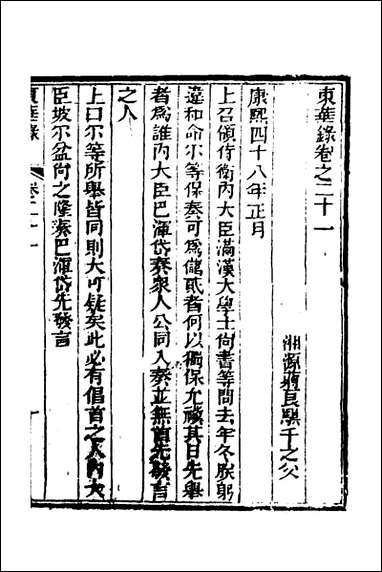 東華錄卷之二十一
湘源蔣良騏千之父
康熙四十八年正月
上召領侍衛內大臣滿漢大學士尙書等問去年冬朕躬
違和命尔等保奏可爲儲貳者何以獨保允禩其日先舉
者爲誰內大臣巴渾岱奏衆人公同入奏並無首先發言
之人
上曰尔等所舉皆同則大可疑矣此必有倡首之人內大
臣坡尔盆向之隆奏巴渾岱先發言
東華錄
卷二十一
一